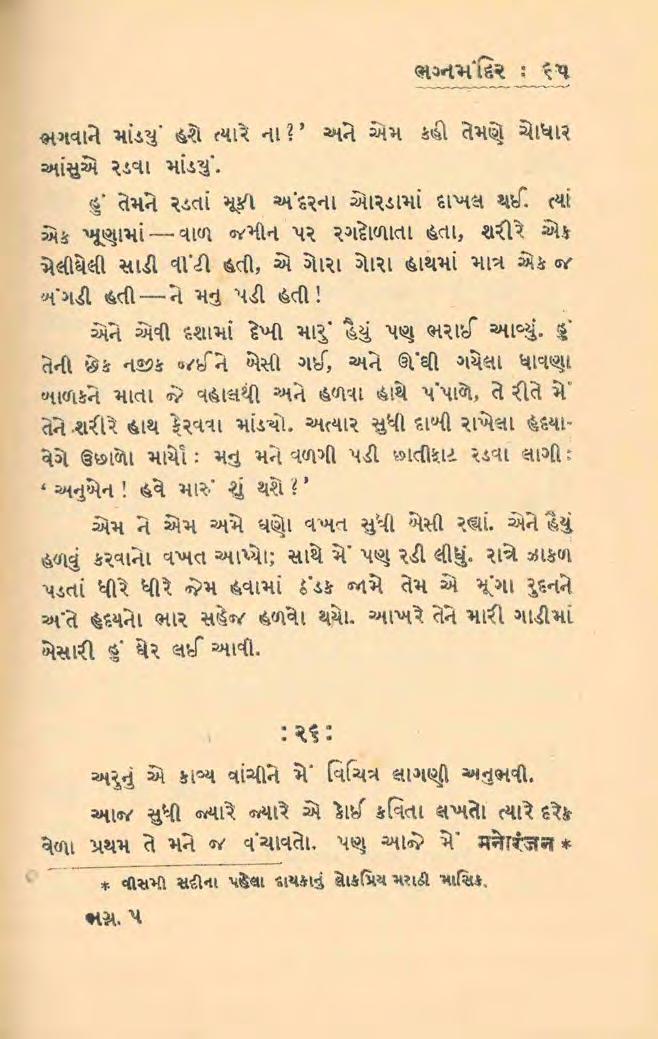 ભગ્નમંદિર : ૬૫
ભગવાને માંડયું હશે ત્યારે ના ?’ અને એમ કહી તેમણે ચોધાર
આંસુએ રડવા માંડયું.
હું તેમને રડતાં મૂકી અંદરના ઓરડામાં દાખલ થઈ. ત્યાં
એક ખૂણામાં — વાળ જમીન પર રગદોળાતા હતા, શરીરે એક
મેલીઘેલી સાડી વીંટી હતી, એ ગોરા ગોરા હાથમાં માત્ર એક જ
બંગડી હતી — ને મનુ પડી હતી !
એને એવી દશામાં દેખી મારું હૈયું પણ ભરાઈ આવ્યું. હું
તેની છેક નજીક જઈને બેસી ગઈ, અને ઊંઘી ગયેલા ધાવણા
બાળકને માતા જે વહાલથી અને હળવા હાથે પંપાળે, તે રીતે મેં
તેને શરીરે હાથ ફેરવવા માંડયો. અત્યાર સુધી દાબી રાખેલા હૃદયા-
વેગે ઉછાળો માર્યો : મનુ મને વળગી પડી છાતીફાટ રડવા લાગી :
‘ અનુબેન ! હવે મારું શું થશે ?’
એમ ને એમ અમે ઘણો વખત સુધી બેસી રહ્યાં. એને હૈયું
હળવું કરવાનો વખત આપ્યો; સાથે મેં પણ રડી લીધું. રાત્રે ઝાકળ
પડતાં ધીરે ધીરે જેમ હવામાં ઠંડક જામે તેમ એ મૂંગા રુદનને
અંતે હૃદયનો ભાર સહેજ હળવો થયો. આખરે તેને મારી ગાડીમાં
બેસારી હું ઘેર લઈ આવી.
: ૨૬ :
અરુનું એ કાવ્ય વાંચીને મેં વિચિત્ર લાગણી અનુભવી.
આજ સુધી જ્યારે જ્યારે એ કોઈ કવિતા લખતો ત્યારે દરેક
વેળા પ્રથમ તે મને જ વંચાવતો. પણ આજે મેં मनोरंजन *
* વીસમી સદીના પહેલા દાયકાનું લોકપ્રિય મરાઠી માસિક.
ભગ્ન. ૫